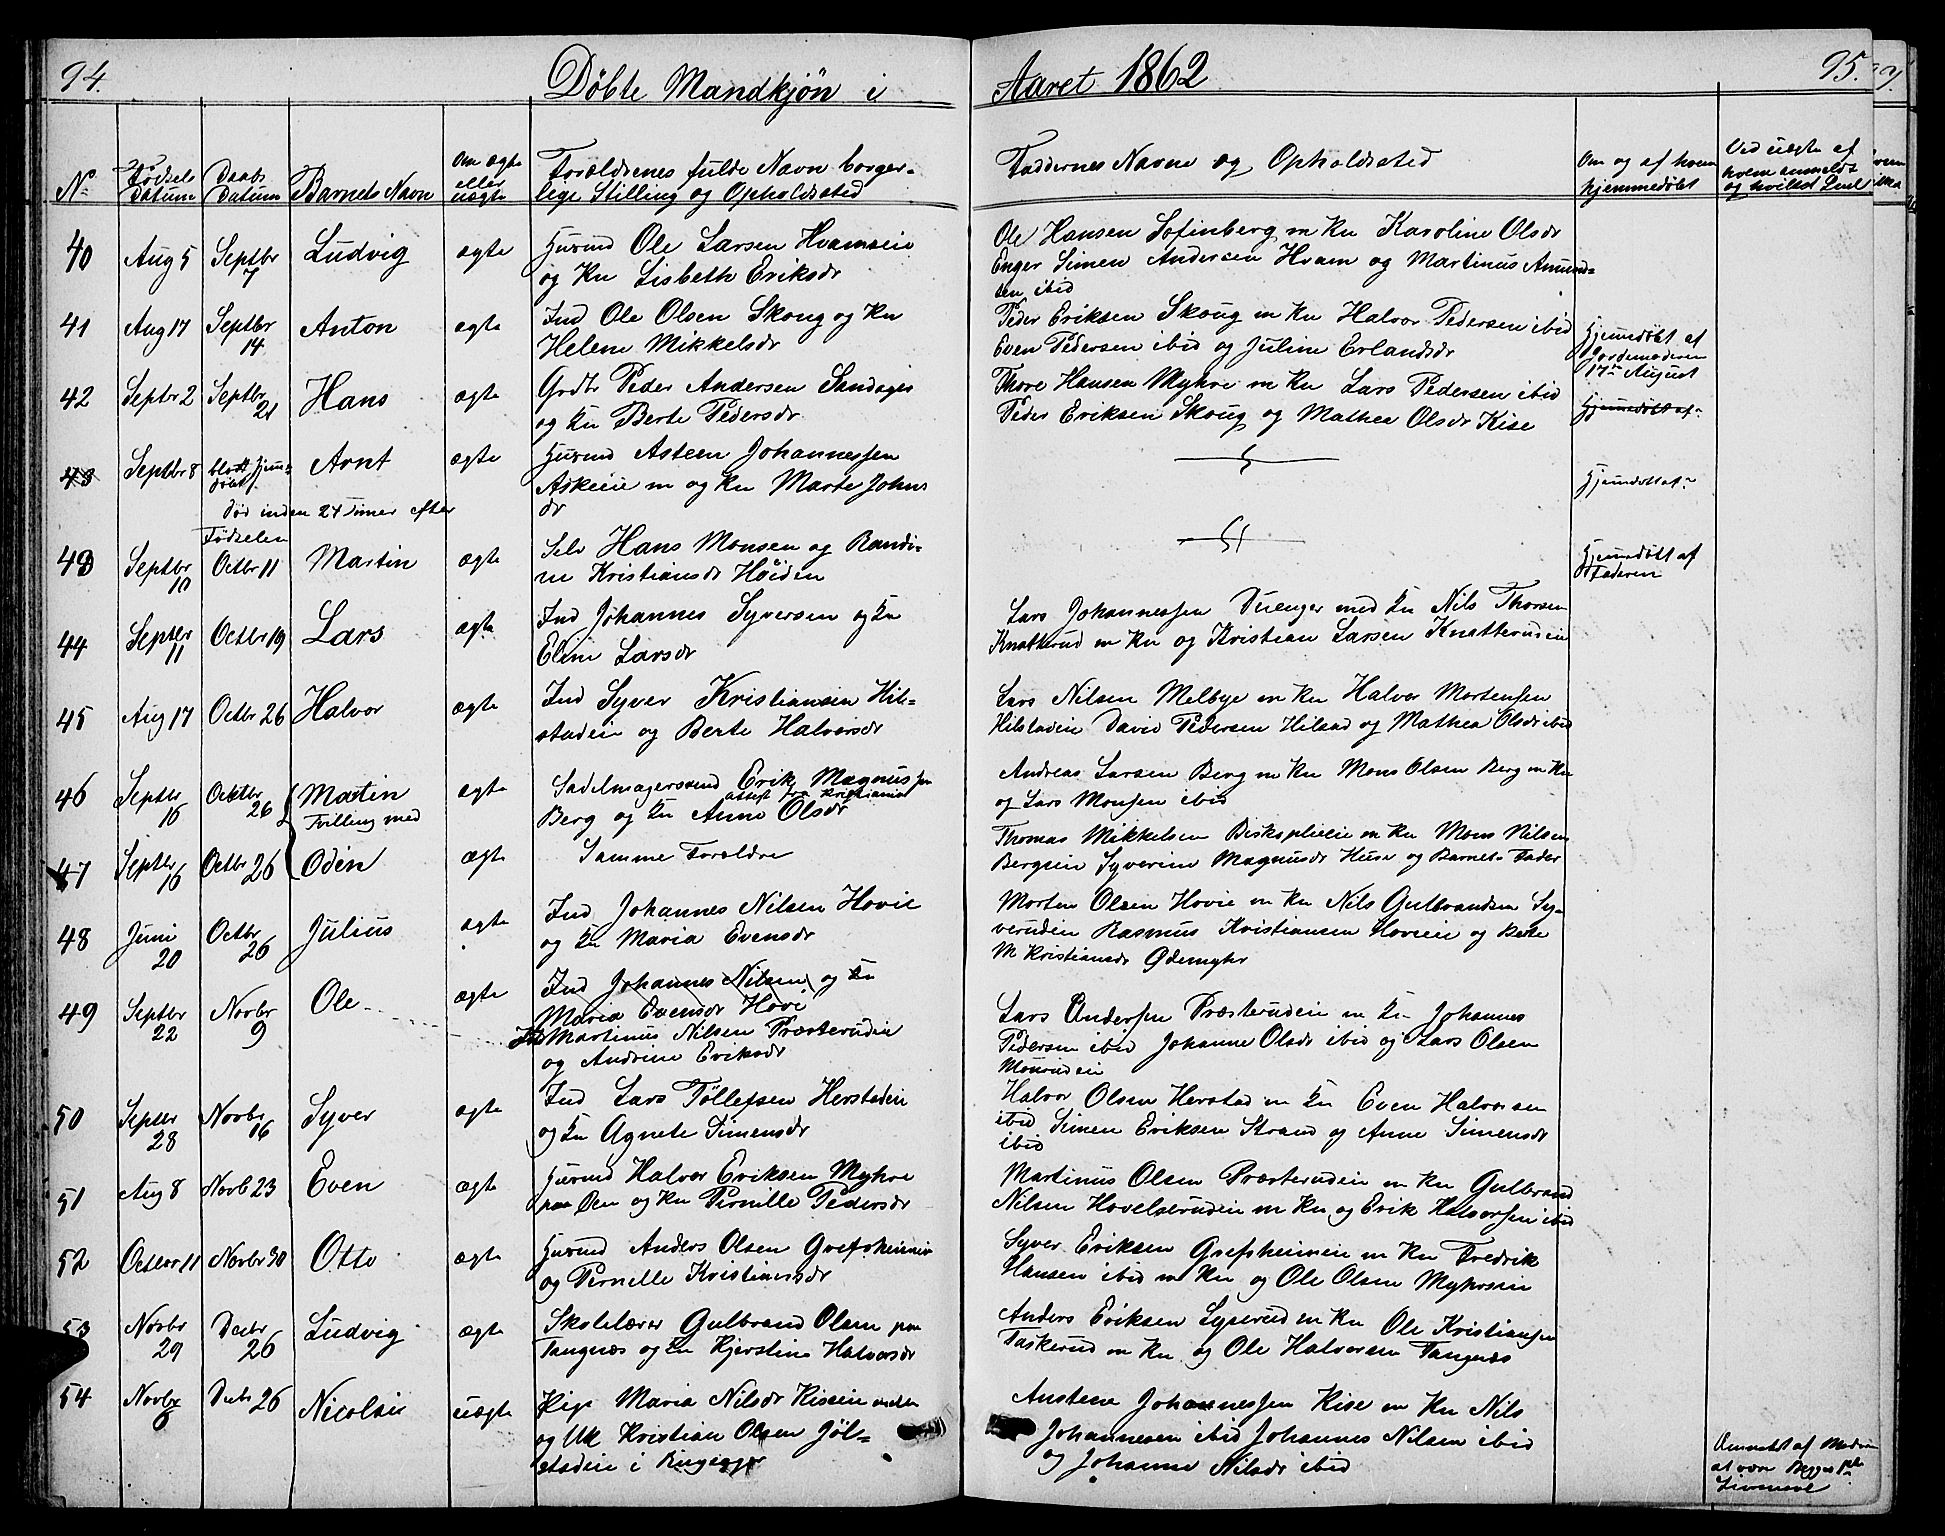 94.
Døbte Mandkjøn i
No
Fødsels Datum
Daabs Datum
Barnets Navn
Om ægte eller uægte
Forældrenes fulde Navn borger-
lige Stilling og Opholdssted
40 Aug 5 Septbr 7 Ludvig ægte Huusmd Ole Larsen Hvamseie
og Ku Lisbeth Eriksdr
41 Aug 17 Septbr 14 Anton ægte Ind Ole Olsen Skoug og Ku
Helene Mikkelsdr
42 Septbr 2 Septbr 21 Hans ægte Grdbr Peder Andersen
og Ku Berte Pedersdr
43 Septbr 8 blott hjemdøbt Arnt ægte Huusmd Asteen Johannessen
Askeeie m og Ku Marte Johns
dr
død inden 24 Timer efter
Fødselen
43 Septbr 10 Octbr 11 Martin ægte Selv Hans Monsen og Randi-
ne Kristiansdr Høiden
44 Septbr 11 Octbr 19 Lars ægte Ind Johannes Syversen og Ku
Eline Larsdr
45 Aug 17 Octbr 26 Halvor ægte Ind Syver Kristiansen Hil-
stadeie og Berte Halvorsdr
46 Septbr 16 Octbr 26 Martin ægte Sadelmagersvend Erik Magnussen
Tvilling med
attest fra Kristiania
Berg og Ku Anne Olsdr
47 Septbr 16 Octbr 26 Odin ægte Samme Forældre
48 Juni 20 Octbr 26 Julius ægte Ind Johannes Nilsen Hovie
og Ku Maria Evensdr
49 Septbr 22 Novbr 9 Ole ægte Ind Johannes Nilsen og Ku
Maria Evensdr Hovi
Ind Martinus Nilsen Præsterudeie
og Andrine Eriksdr
50 Septbr 28 Novbr 16 Syver ægte Ind Lars Tollefsen Herstadeie
og Ku Agnete Simensdr
51 Aug 8 Novb 23 Even ægte Huusmd Halvor Eriksen Myhre
paa Øen og Ku Pernille Pedersdr
52 Octbr 11 Novbr 30 Otto ægte Huusmd Anders Olsen Grefsheimeie
og Pernille Kristiansdr
53 Novbr 29 Decbr 26 Ludvig ægte Skolelærer Gulbrand Olsen paa
Tangnæs og Ku Kjerstine Halvorsdr
54 Novbr 8 Decbr 26 Nicolai uægte Pige Maria Nilsdr Kiseeie
og UK Kristian Olsen Jøl-
stadeie i Ringsager
Aaret 1862
95.
Faddernes Navne og Opholdssted
Om og af hvem
hjemmedøbt
Ved uægte af
hvem anmeldt
og hvilket Leie
Ole Hansen Sofinberg m Ku Karoline Olsdr
Enger Simen Andersen Hvam og Martinus Amund-
sen ibid
Peder Eriksen Skoug m Ku Halvor Pedersen ibid
Even Pedersen ibid og Juline Erlandsdr
Hjemdøbt af
Jordemoderen
17de August
Thore Hansen Myhre m Ku Lars Pedersen ibid
Peder Eriksen Skoug og Mathea Olsdr Kise
Hjemmedøbt af
Hjemdøbt af
Hjemmedøbt af
Faderen
Lars Johannessen Duenger med Ku Nils Thorsen
Knatterud m Ku og Kristian Larsen Knatterudeie
Lars Nilsen Melbye m Ku Halvor Mortensen
Hilstadeie David Pedersen Hilsad og Mathea Olsdr ibid
Andreas Larsen Berg m Ku Mons Olsen Berg m Ku
og Lars Monsen ibid
Thomas Mikkelsen Biskoplieie m Ku Mons Nilsen
Bergseie Syverine Magnusdr Huse og Barnets Fader
Morten Olsen Hovie m Ku Nils Gulbrandsen Sy-
verudeie Rasmus Kristiansen Hovieie og Berte
M Kristiansdr Ødemyhr
Lars Andersen Præsterudeie m Ku Johannes
Pedersen ibid Johanne Olsdr ibid og Lars Olsen
Mourudeie
Halvor Olsen Herstad m Ku Even Halvorsen
ibid Simen Eriksen Strand og Anne Simensdr
ibid
Martinus Olsen Præsterudeie m Ku Gulbrand
Nilsen Hovelserudeie m Ku og Erik Halvorsen ibid
Syver Eriksen Grefsheimeie m Ku Fredrik
Hansen ibid m Ku og Ole Olsen Myhrseie
Anders Eriksen Lyserud m Ku Ole Kristiansen
Taskerud m Ku og Ole Halvorsen Tangnæs
Austene Johannessen Kise m Ku Nils
Johannesen ibid Johannes Nilsen ibid
og Johanne Nilsdr ibid
Anmeldt af Moderen
at være Begges 1ste
Leiermaal